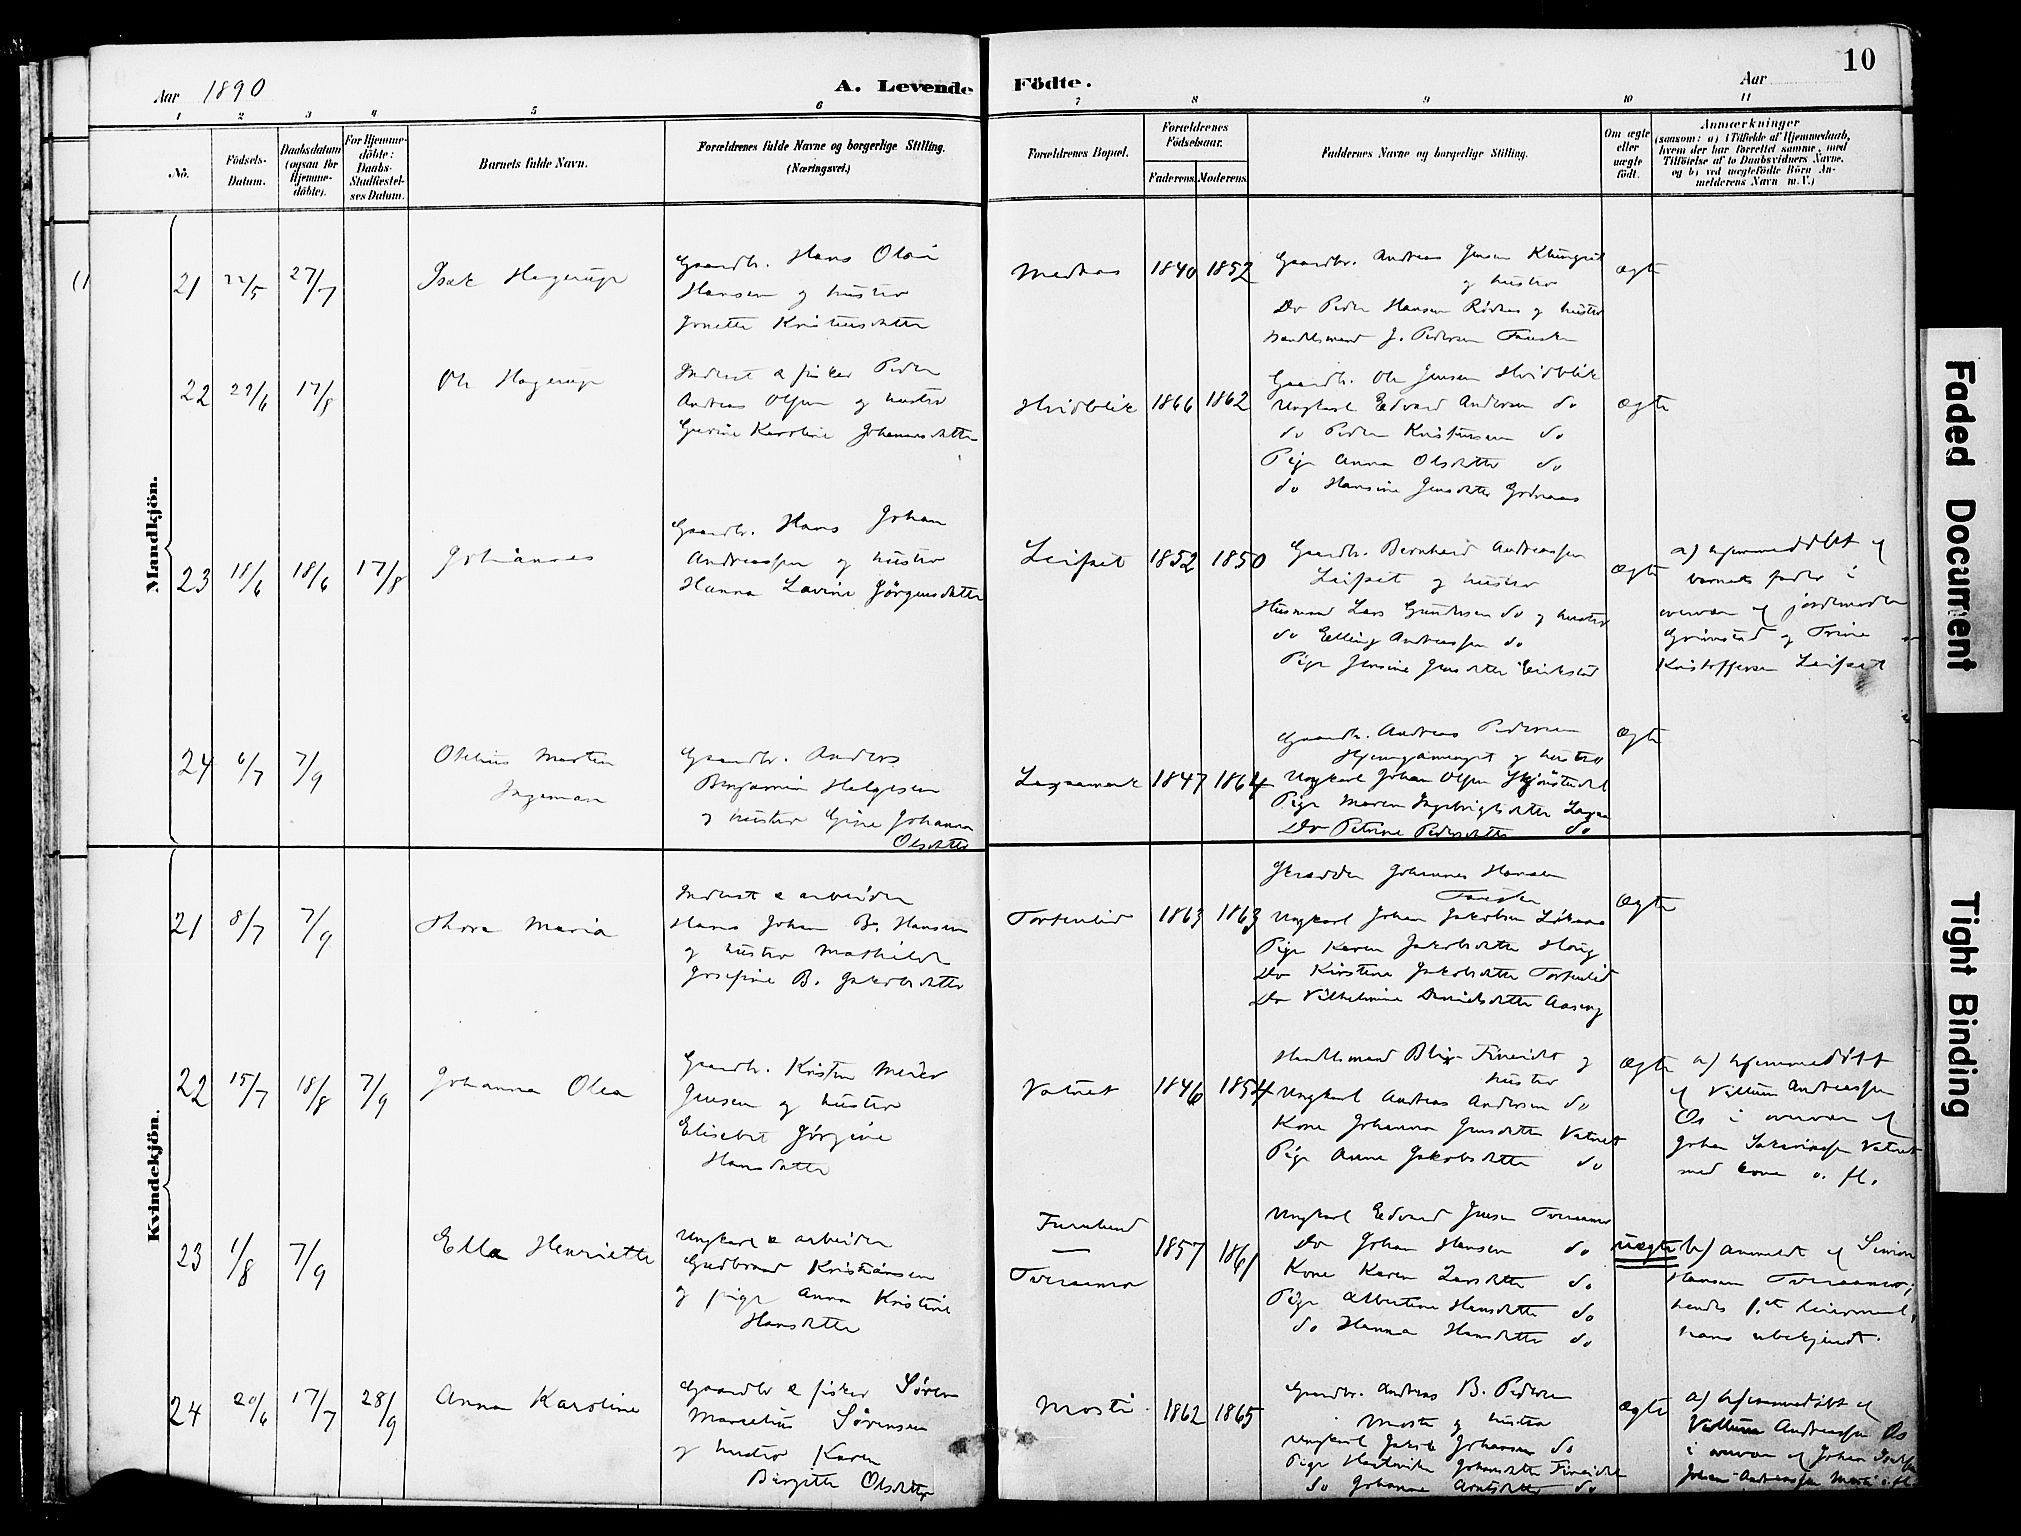 Aar 1890
A. Levende Födte.
Aar
10
1 2 3 4 5 6 7 8 9 10 11
No.
Födsels-Datum.
Daabsdatum (ogsaa for Hjemme-döbte).
For Hjemme-döbte: Daabs-Stadfæstel-ses Datum.
Barnets fulde Navn.
Forældrenes fulde Navne og borgerlige Stilling. (Næringsvei.)
Forældrenes Bopæl.
Forældrenes Födselsaar.
Faderens. Moderens.
Faddernes Navne og borgerlige Stilling.
Om ægte eller uægte födt.
Anmærkninger
(saasom: a) i Tilfælde af Hjemmedaab,
hvem der har forrettet samme, med
Tilföielse af to Daabsvidners Navne,
og b) ved uægtefödte Börn An-
melderens Navn m. V.)
Mandkjön.
21 22/5 27/7
Isak Hagerup
Gaardbr. Hans Olai
Hansen og hustro
Jonette Kristensdatter
1840 1852
Gaardbr. Andreas Jensen
og hustro
Do Peder Hansen og hustro
Handelsmand J. Pedersen Fauske
ægte
22 17/8
Ole Hagerup
Inderst & fisker Peder
Andreas Olsen og hustro
Gurine Karoline Johannesdatter
Hvidblik
1866 1862
Gaardbr. Ole Jensen Hvidblik
Ungkarl Edvard Andersen do
do Peder Kristensen do
Pige Anna Olsdatter do
do Hansine Jensdatter
ægte
23 18/6 18/6 17/8
Johannes
Gaardbr. Hans Johan
Andreassen og hustro
Hanna Lavine Jørgensdatter
Leifset
1852 1850
Gaardbr. Bernhard Andreassen
Leifset og hustro
Husmand Lars do og hustro
do Elling Andreassen do
Pige Jensine Jensdatter Erikstad
ægte
a) hjemmedøbt af
barnets fader i
overvær af jordemoder
Grönstad og Trine
Kristoffersen Leifset
24 6/7 7/9
Martin
Ingeman
Gaardbr. Anders
Benjamin Helgesen
og hustro Gine Johanna
Olsdatter
1847 1864
Gaardbr. Andreas Pedersen
og hustro
Ungkarl Johan Olsen
Pige Maren Ingebrigtsdatter
Do Petrine Pedersdatter do
ægte
Kvindekjön.
21 8/7 7/9
Thora Maria
Inderst & arbeider
Hans Johan B. Hansen
og hustro Mathilde
Josefine B. Jakobsdatter
Tortenlid
1863 1863
Skrædder Johannes Hansen
Fauske
Ungkarl Johan Jakobsen
Pige Karen Jakobsdatter Haug
Do Kirstine Jakobsdatter Tortenlid
Do Vilhelmine Danielsdatter Aaseng
ægte
22 15/7 18/8 7/9
Johanna Olea
Gaardbr. Kristen Meier
Jensen og hustro
Elisabet Jørgine
Hansdatter
Vatnet
1846 1854
Handelsmand Blix Fineidet og
hustro
Ungkarl Andreas Andersen do
Kone Johanna Jensdatter Vatnet
Pige Anne Jakobsdatter do
ægte
a) hjemmedøbt
af Villum Andreassen
Os i overvær af
Johan Vatnet
med kone o. fl.
23 1/8 7/9
Ella Henriette
Ungkarl & arbeider
Gudbrand Kristiansen
og pige Anna Kristine
Hansdatter
Furulund
—
Tveraamo
1857 1861
Ungkarl Edvard Jensen Tveraamo
Do Johan Hansen do
Kone Karen Larsdatter do
Pige Albertine Hansdatter do
do Hanna Hansdatter do
uægte
b) anmeldt af Simon
Hansen Tveraamo;
hendes 1ste leiermaal,
hans ubekjendt.
24 20/6 17/7 28/9
Anna Karoline
Gaardbr & fisker Søren
Marselius Sørensen
og hustro Karen
Birgitte Olsdatter
Mosti
1862 1865
Gaardbr. Andreas B. Pedersen
Mosti og hustro
Ungkarl Jakob Johansen do
Pige Hartvikke Johansdatter Fineidet
do Johanna Arntsdatter do
ægte
a) hjemmedøbt af
Villum Andreassen Os
i overvær af Johan
Johan Andreassen Mosti o. fl.
Faded Document
Tight Binding